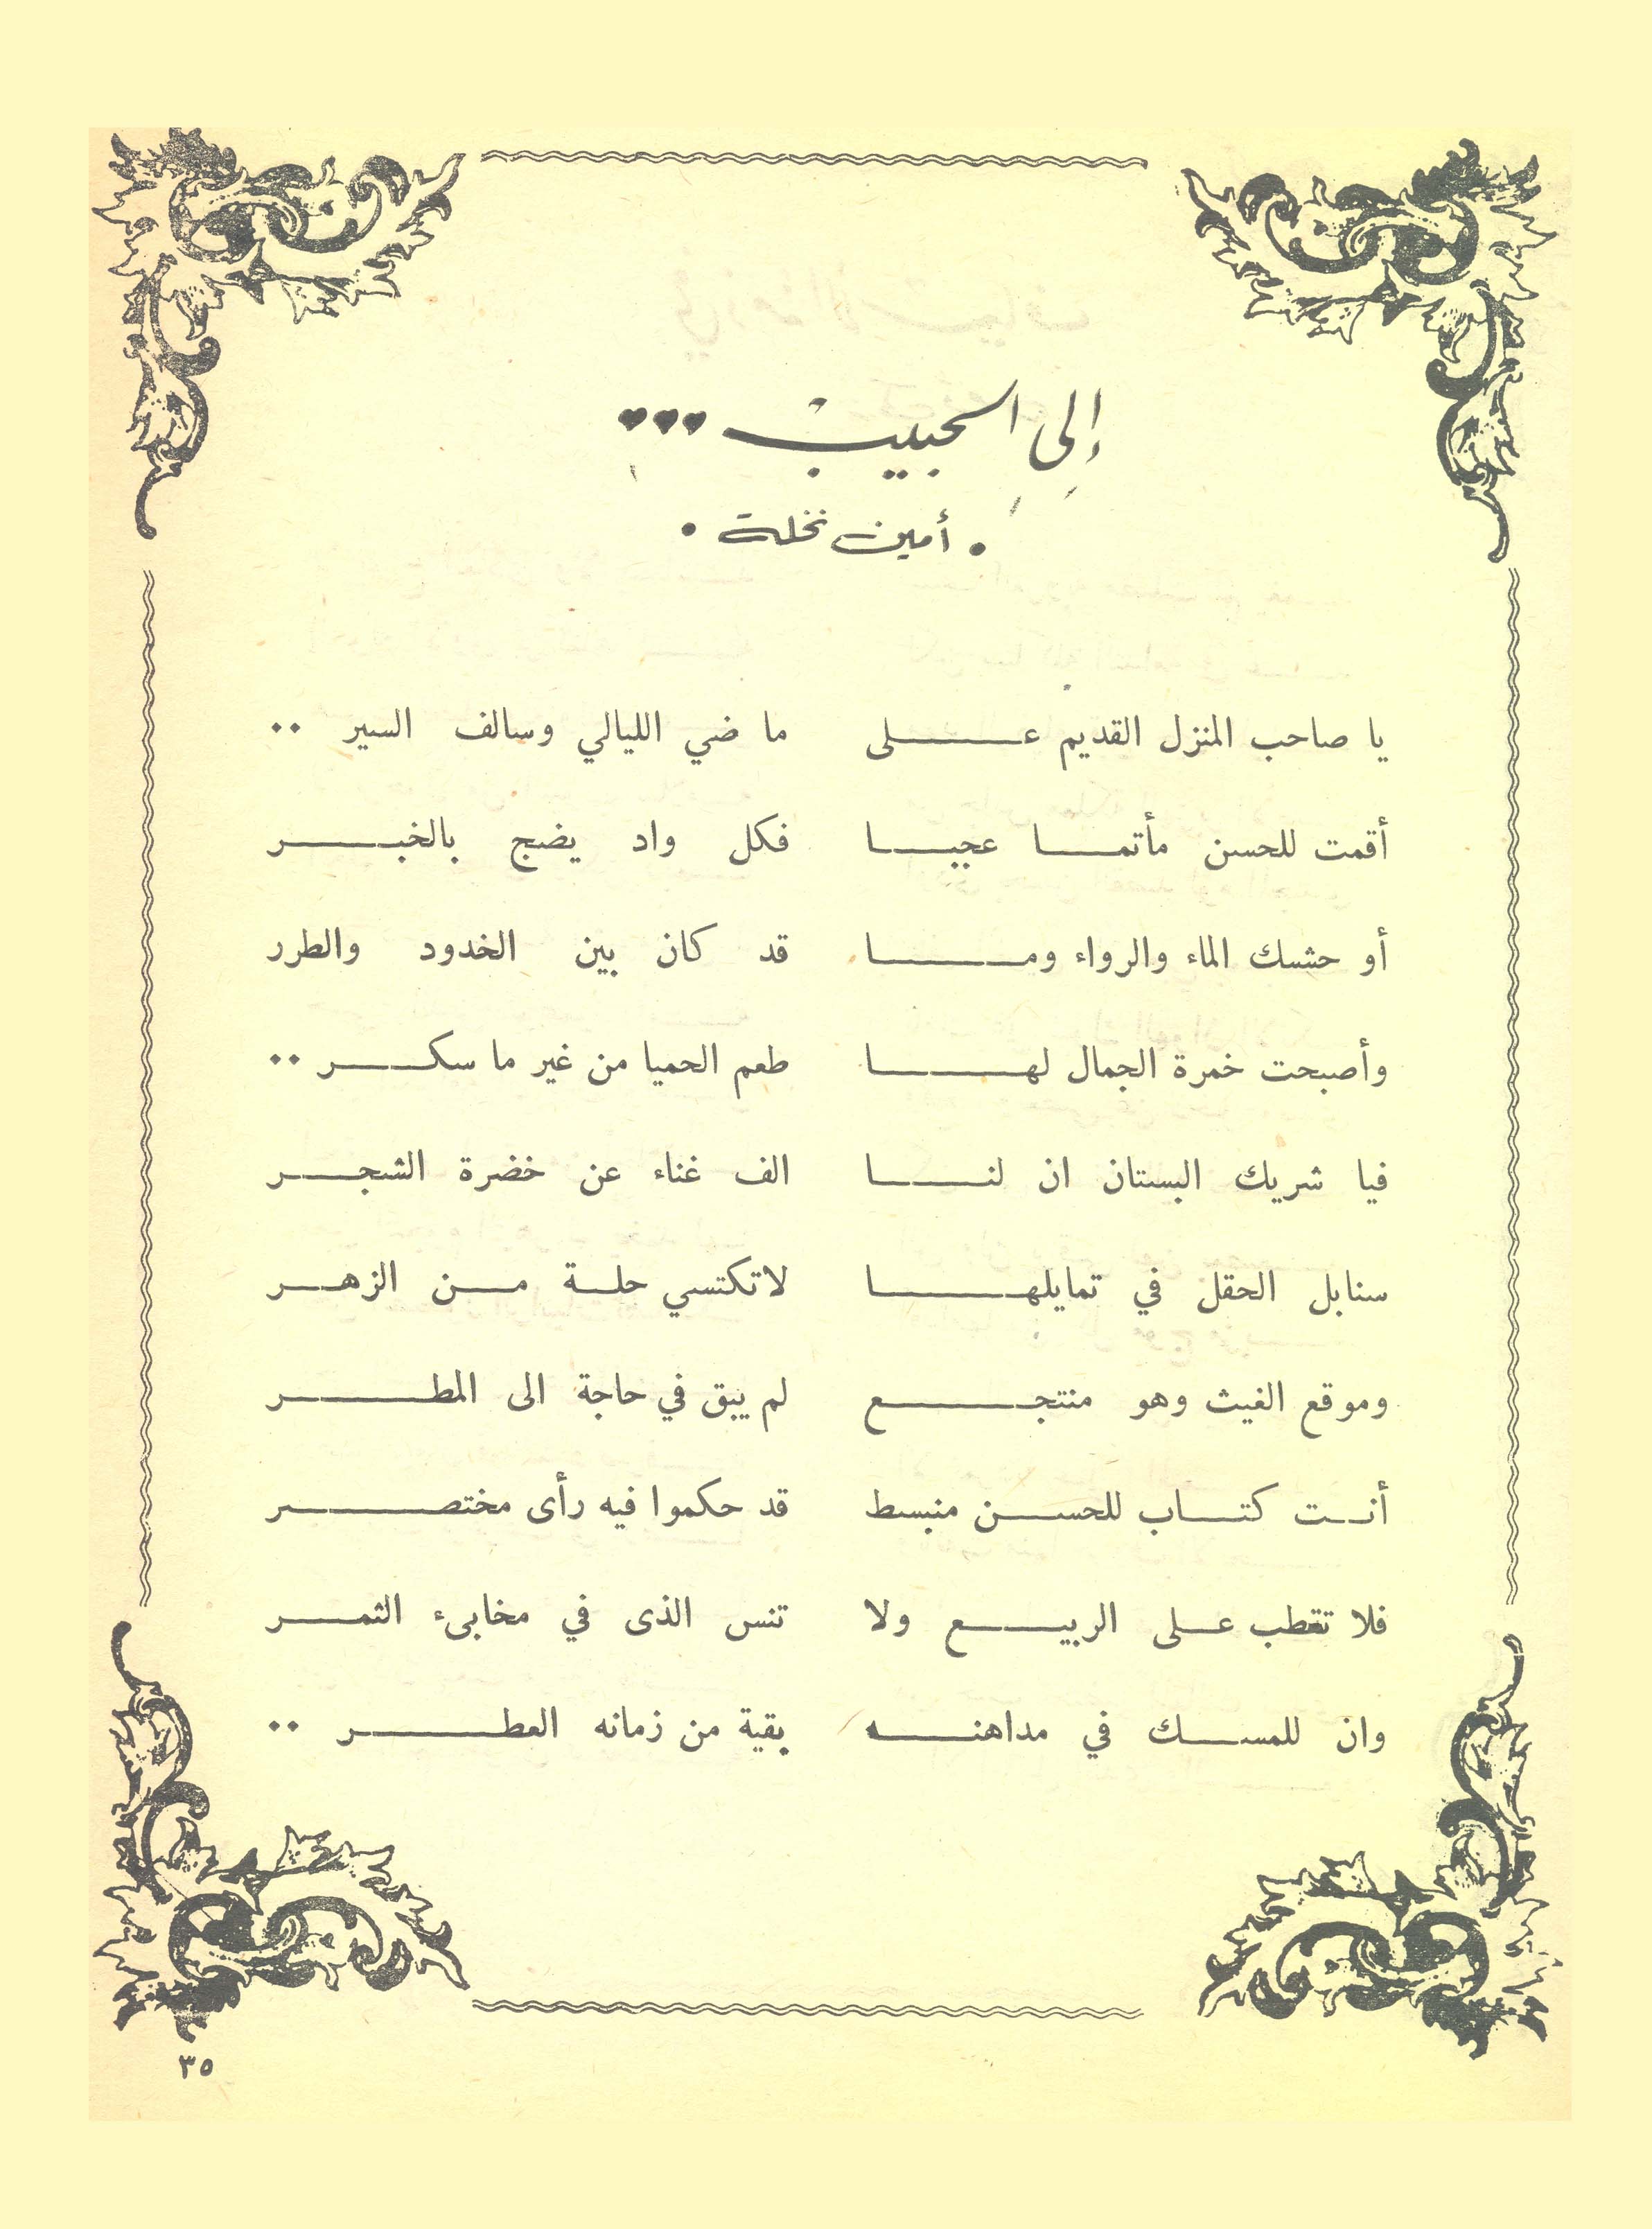 إلى الحبيب ...
• أمين نخلة •
يا صاحب المنزل القديم على ما ضي الليالي وسالف السير ..
أقمت للحسن مأتما عجبا فكل واد يضج بالخبر
أو حشك الماء والرواء وما قد كان بين الخدود والطرر
وأصبحت خمرة الجمال لها طعم الحميا من غير ما سكر ..
فيا شريك البستان ان لنا الف غناء عن خضرة الشجر
سنابل الحقل في تمايلها لاتكتسي حلة من الزهر
وموقع الغيث وهو منتجع لم يبق في حاجة الى المطر
أنت كتاب للحسن منبسط قد حكموا فيه رأى مختصر
فلا تقطب على الربيع ولا تنس الذى في مخابىء الثمر
وان للمسك في مداهنه بقية من زمانه العطر ..
٣٥